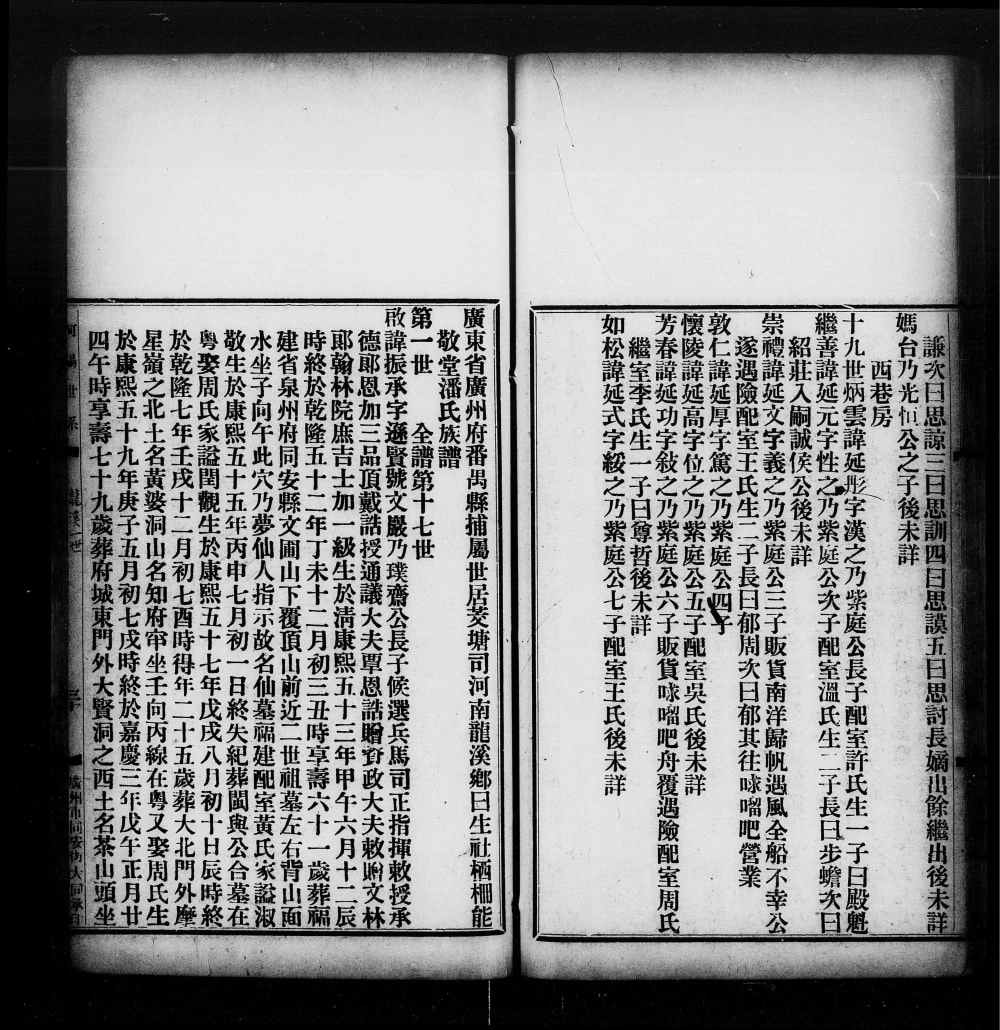 謙次曰思諒三曰思訓四曰思謨五曰思討長嫡出餘繼出後未詳
媽台乃光恒公之子後未詳
西巷房
十九世炳雲諱延彤字漢之乃紫庭公長子配室許氏生一子曰殿魁
繼善諱延元字性之乃紫庭公次子配室溫氏生二子長曰步蟾次曰
紹莊入嗣誠侯公後未詳
崇禮諱延文字義之乃紫庭公三子販貨南洋歸帆遇風全船不幸公
遂遇險配室王氏生二子長曰郁周次曰郁其往咪𠺕吧營業
敦仁諱延厚字篤之乃紫庭公四子
懷陵諱延高字位之乃紫庭公五子配室吳氏後未詳
芳春諱延功字敍之乃紫庭公六子販貨咪𠺕吧舟覆遇險配室周氏
繼室李氏生一子曰尊哲後未詳
如松諱延式字綏之乃紫庭公七子配室王氏後未詳
廣東省廣州府番禺縣捕屬世居茭塘司河南龍溪鄉曰生社栖柵能
敬堂潘氏族譜
第一世 全譜第十七世
啟諱振承字遜賢號文巖乃璞齋公長子候選兵馬司正指揮敕授承
德郎恩加三品頂戴誥授通議大夫覃恩誥贈資政大夫敕贈文林
郎翰林院庶吉士加一級生於清康熙五十三年甲午六月十二辰
時終於乾隆五十二年丁未十二月初三丑時享壽六十一歲葬福
建省泉州府同安縣文圃山下覆頂山前近二世祖墓左右背山面
水坐子向午此穴乃夢仙人指示故名仙墓福建配室黃氏家謚淑
敬生於康熙五十五年丙申七月初一日終失紀葬閩與公合墓在
粵娶周氏家謚閏觀生於康熙五十七年戊戌八月初十日辰時終
於乾隆七年壬戌十二月初七酉時得年二十五歲葬大北門外摩
星嶺之北土名黃婆洞山名知府窂坐壬向丙線在粵又娶周氏生
於康熙五十九年庚子五月初七戌時終於嘉慶三年戊午正月廿
四午時享壽七十九歲葬府城東門外大賢洞之西土名茶山頭坐
河陽世系 龍溪一世